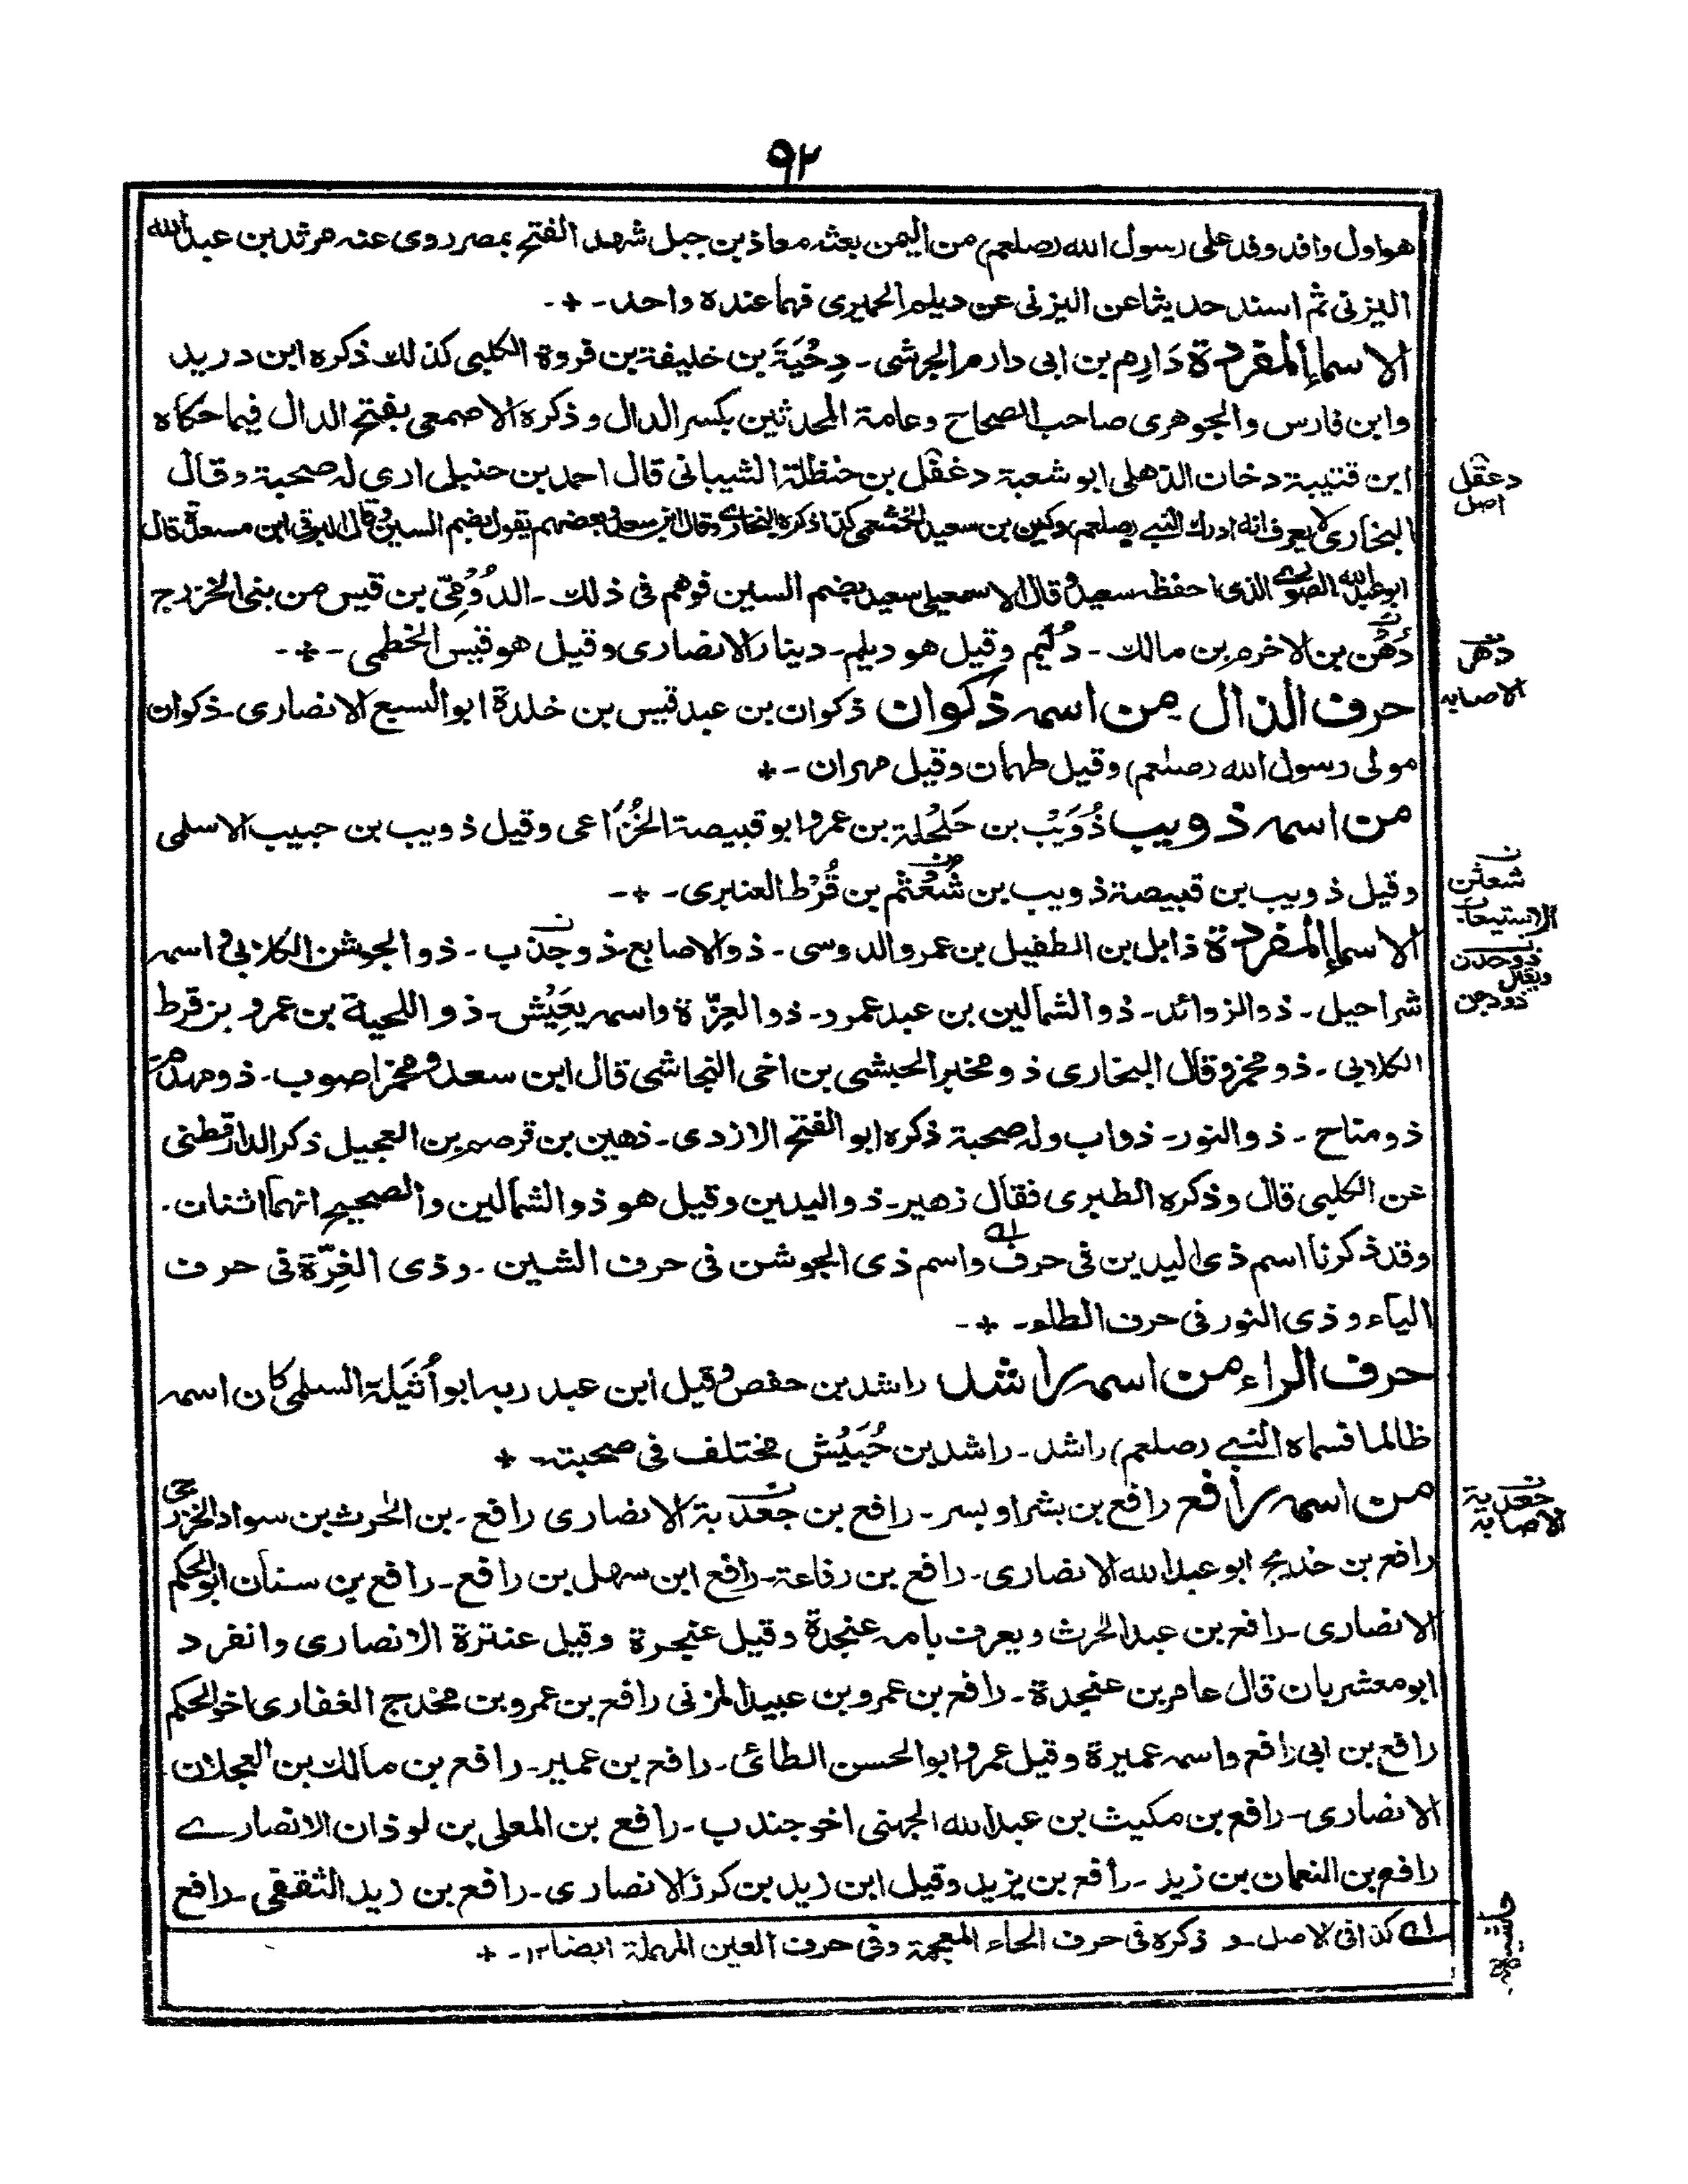 ٩٢
هو اول وافد وفد على رسول الله (صلعم) من اليمن بعثه معاذ بن جبل شهد الفتح بمصر روى عنه مرثد بن عبد الله
اليزنى ثم اسند حديثا عن اليزنى عن ديلم الحميرى فهما عنده واحد ـ ٭ ـ
الاسماء المفردة دَارِم بن ابى دارم الجرشى ـ دِحْيَةَ بن خليفة بن فروة الكلبى كذلك ذكره ابن دريد
وابن فارس والجوهرى صاحب الصحاح وعامة المحدثين بكسر الدال و ذكره الاصمعى بفتح الدال فيما حكاه
ابن قتيبة دخان الذهلى ابو شعبة دغفل بن حنظلة الشيبانى قال احمد بن حنبل ارى له صحبة وقال
البخارى لا يعرف انه ادرك النبى (صلعم) دكين بن سعيد الخثعمى كذا ذكره البخارى وقال ابن سعد وبعضهم يقول بضم السين وقال البرقى ابن مسعدة قال
ابو عبد الله الصورى الذى احفظه سعيد وقال الاسمعيلى سعيد بضم السين فوهم فى ذلك ـ الدُوْمِىّ بن قيس من بنى الخزرج
دَهْن بن الاخرم بن مالك ـ دُلَيم وقيل هو ديلم ـ دينار الانصارى وقيل هو قيس الخطمى ـ ٭ ـ
حرف الذال من اسمه ذكوان ذكوان بن عبد قيس بن خلدة ابو السبع الانصارى ـ ذكوان
مولى رسول الله (صلعم) وقيل طهمان وقيل مهران ـ ٭
من اسمه ذويب ذُوَيْب بن حَلْحَلة بن عمرو ابو قبيصة الخُزَاعى وقيل ذويب بن حبيب الاسلمى
وقيل ذويب بن قبيصة ذويب بن شُعْثُم بن قُرْط العنبرى ـ ٭ ـ
الاسماء المفردة ذابل بن الطفيل بن عمرو الدوسى ـ ذو الاصابع ـ ذو جذب ـ ذو الجوشن الكلابى و اسمه
شراحيل ـ ذو الزوائد ـ ذو الشمالين بن عبد عمرو ـ ذو الغِرّة واسمه يعَيْش ـ ذو اللحية بن عمرو بن قرط
الكلابى ـ ذو مخمر وقال البخارى ذو مخبر الحبشى بن اخى النجاشى قال ابن سعد ومخمر اصوب ـ ذو مهدم
ذو مناح ـ ذو النور ـ ذواب وله صحبة ذكره ابو الفتح الازدى ـ ذهين بن قرضم بن العجيل ذكر الدارقطنى
عن الكلبى قال وذكره الطبرى فقال زهير ـ ذو اليدين وقيل هو ذو الشمالين والصحيح انهما اثنان ـ
وقد ذكرنا اسم ذى اليدين فى حرف له واسم ذى الجوشن فى حرف الشين ـ وذى الغِرّة فى حرف
الياء وذى النور فى حرف الطاء ـ ٭ ـ
حرف الراء من اسمه راشد راشد بن حفص وقيل ابن عبد ربه ابو أُثيلة السلمى كان اسمه
ظالما فسماه النبى (صلعم) راشد ـ راشد بن حُبَيْش مختلف فى صحبته ـ ٭
من اسمه رافع رافع بن بشر او بسر ـ رافع بن جعدبة الانصارى رافع ـ بن الحرث بن سواد الخزرجى
رافع بن خديج ابو عبد الله الانصارى ـ رافع بن رفاعة ـ رافع ابن سهل بن رافع ـ رافع بن سنان ابو الحكم
الانصارى ـ رافع بن عبد الحرث ويعرف بامه عنجدة وقيل عنجرة وقيل عنترة الانصارى وانفرد
ابو معشر بان قال عامر بن عنجدة ـ رافع بن عمرو بن عبيد المزنى رافع بن عمرو بن مخدج الغفارى اخو الحكم
رافع بن ابى رافع واسمه عميرة وقيل عمرو ابو الحسن الطائى ـ رافع بن عمير ـ رافع بن مالك بن العجلان
الانصارى ـ رافع بن مكيث بن عبد الله الجهنى اخو جندب ـ رافع بن المعلى بن لوذان الانصارى
رافع بن النعمان بن زيد ـ رافع بن يزيد وقيل ابن زيد بن كرز الانصارى ـ رافع بن زيد الثقفى ـ رافع
له كذا فى الاصل ـ و ذكره فى حرف الخاء المعجمة وفى حرف العين المهملة ايضا ١٢ ـ ٭
دعقل
اصل
دهر
الاصابه
شعثن
الاستيعاب
ذو جدن
ويقال
ذو دجن
جعدية
الاصابه
حاشيه